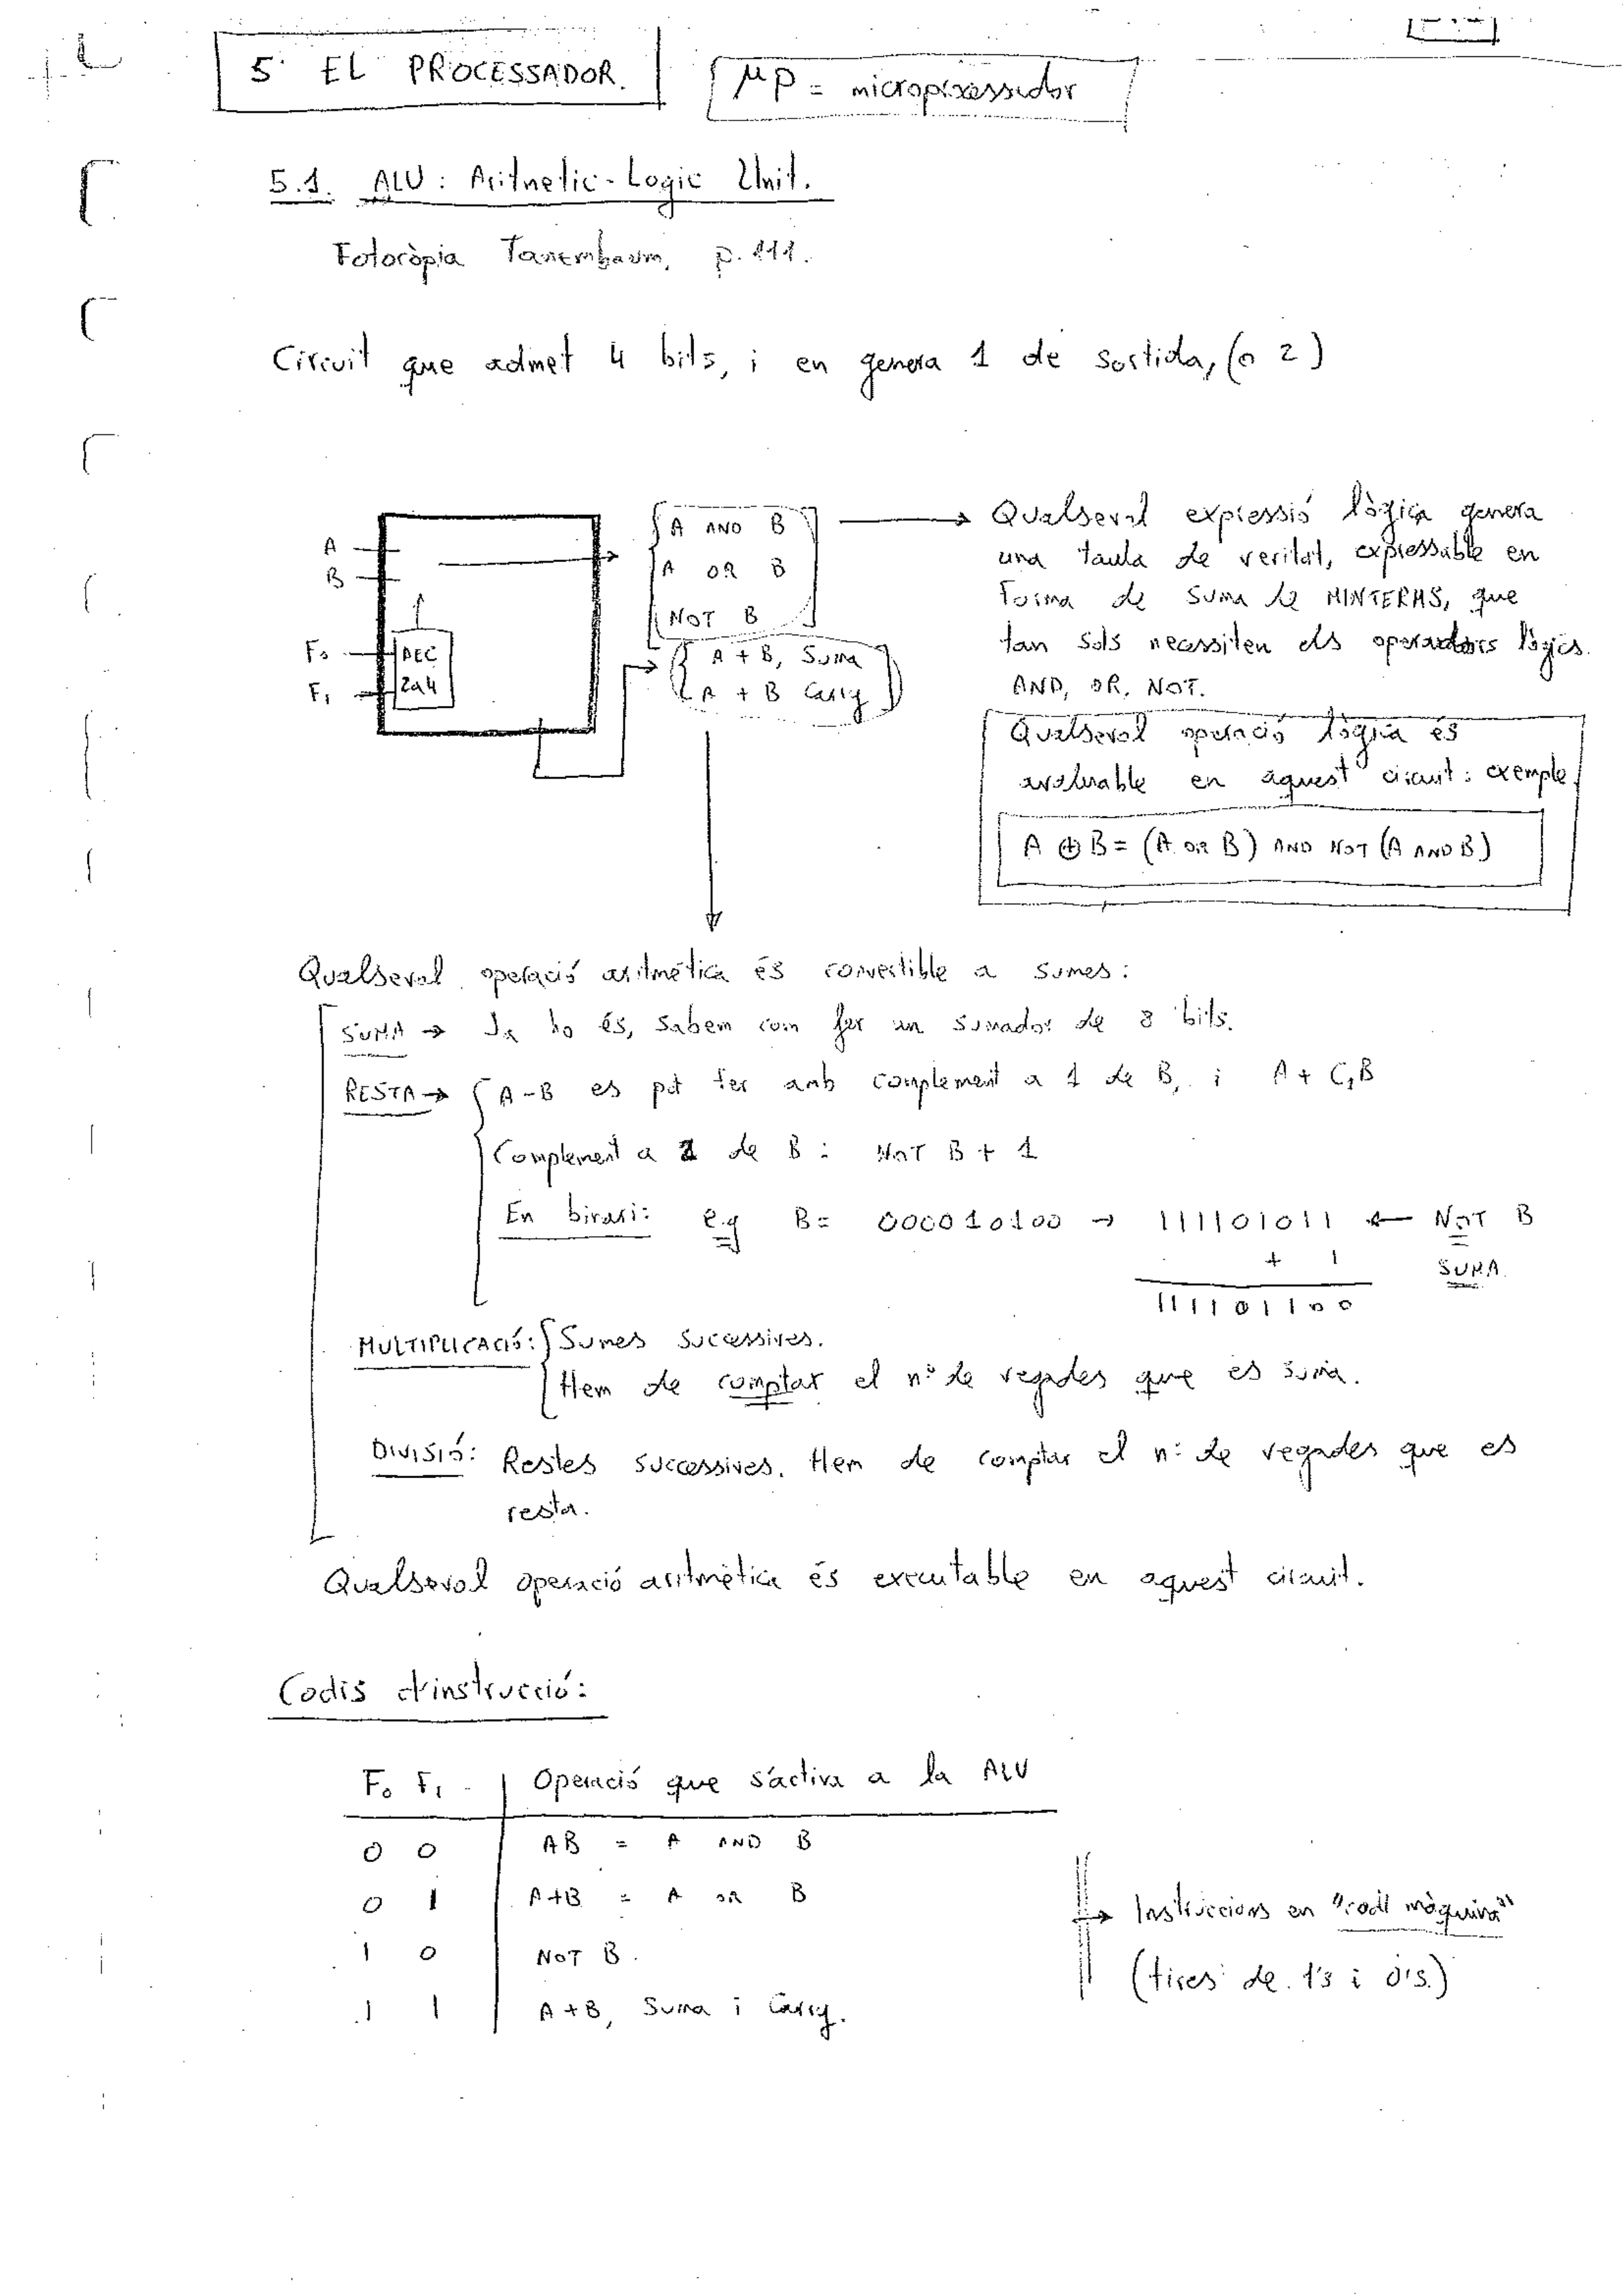 5 EL PROCESSADOR.
μp = microprocessador
5.1. ALU: Aritmetic-Logic Unit.
Fotocòpia Tanembaum, p. 111.
Circuit que admet 4 bits, i en genera 1 de sortida, (o 2)
A
B
F₀
F₁
DEC
2a4
A AND B
A OR B
NOT B
A + B, Suma
A + B Carry
Qualsevol expressió lògica genera
una taula de veritat, expressable en
forma de suma de MINTERMS, que
tan sols necessiten els operadors lògics
AND, OR, NOT.
Qualsevol operació lògica és
avaluable en aquest circuit: exemple
A ⊕ B = (A OR B) AND NOT (A AND B)
Qualsevol operació aritmètica és convertible a sumes:
SUMA → Ja ho és, sabem com fer un sumador de 8 bits.
RESTA → A-B es pot fer amb complement a 1 de B, i A + C₁B
Complement a 1 de B: NOT B + 1
En binari: e.g B= 000010100 → 111101011 ← NOT B
+ 1 SUMA
111101100
MULTIPLICACIÓ: Sumes successives.
Hem de comptar el nº de vegades que es suma.
DIVISIÓ: Restes successives. Hem de comptar el nº de vegades que es
resta.
Qualsevol operació aritmètica és executable en aquest circuit.
Codis d'instrucció:
F₀ F₁ Operació que s'activa a la ALU
0 0 AB = A AND B
0 1 A+B = A OR B
1 0 NOT B.
1 1 A+B, Suma i Carry.
→ Instruccions en "codi màquina"
(tires de 1's i 0's.)